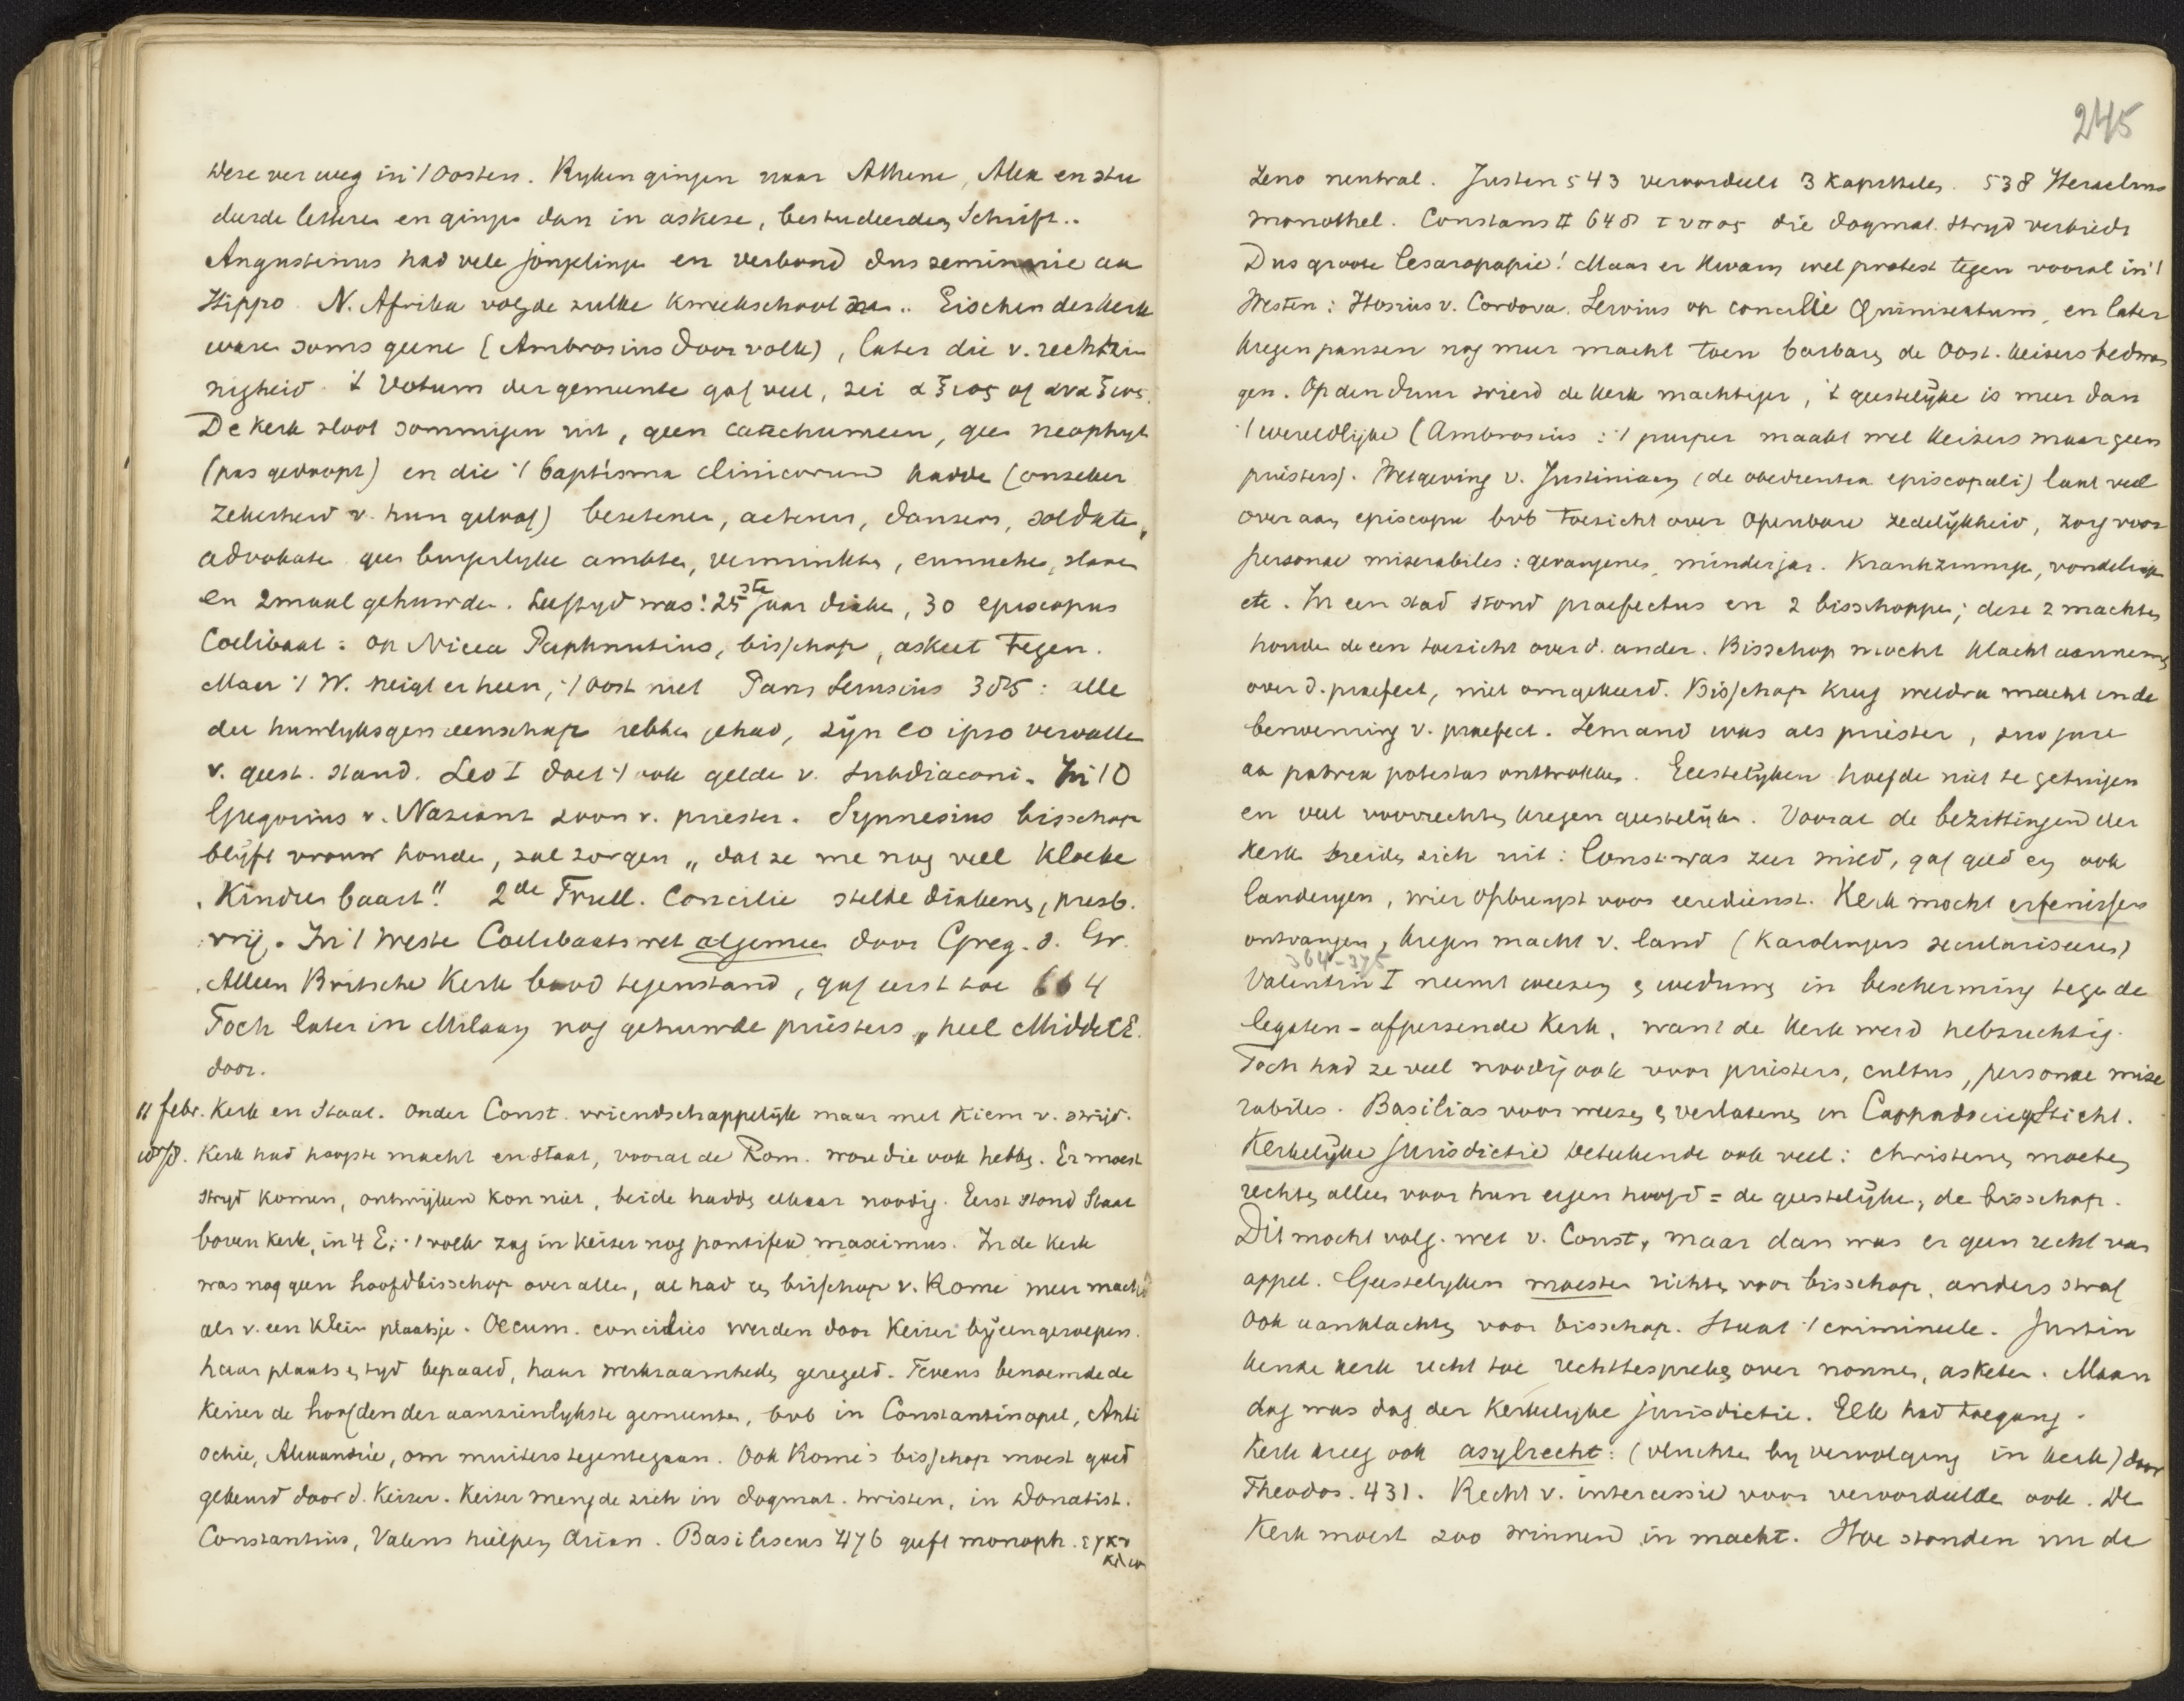 deze ver weg in 't Oosten. Ryken gingen naar Athene, Alex en stu
deerde lettere en ginge dan in askese, bestudeerden Schrift..
Augustinus had vele jongelinge en verbond dus seminarie aa
Hippo. N. Afrika volgde zulke kweekschool .. Eischen der kerk
ware soms geene (Ambrosius door volk), later die v. rechtzin
nigheid. 't Votum der gemeente gaf veel, zei αξιος of αναξιος.
De kerk sloot sommigen uit, geen catechumeen, gee neophyt
(pas gedoopt) en die 't baptisma clinicorum hadde (onzeker
zekerheid v. hun geloof) bezetenen, acteurs, dansers, soldate,
advokate gee burgerlyke ambte, verminkte, eunuche, slave
en 2maal gehuwde. Leeftyd was: 25ste jaar diake, 30 episcopus
Coelibaat: op Nicea Paphnutius, bisschop, askeet tegen.
Maar 't W. neigt er heen, 't Oost niet Paus Siricius 385: alle
die huwlyksgemeenschap hebbe gehad, zijn eo ipso vervalle
v. geest. stand. Leo I doet 't ook gelde v. subdiaconi. In 't O
Gregorius v. Nazianz zoon v. priester. Synnesius bisschop
blijft vrouw houde, zal zorgen „dat ze me nog veel kloeke
kindre baart." 2de Trull. Concilie stelde diakens, presb.
vrij. In 't Weste Coelibaatswet algemee door Greg. d. Gr.
Alleen Britsche Kerk bood tegenstand, gaf eerst toe 664
Toch later in Milaan nog gehuwde priesters, heel Midd. E.
door.
11 febr. Kerk en Staat. Onder Const. vriendschappelijk maar met kiem v. strijd.
Kerk had hoogste macht en Staat, vooral de Rom. wou die ook hebbe. Er moest
stryd komen, ontwijken kon niet, beide hadde elkaar noodig. Eerst stond Staat
boven kerk, in 4 E. 't volk zag in keizer nog pontifex maximus. In de kerk
was nog geen hoofdbisschop over alles, al had ee bisschop v. Rome meer macht
als v. een klein plaatsje. Oecum. concilies werden door Keizer bijeengeroepen.
haar plaats en tyd bepaald, haar werkzaamhede geregeld. Tevens benoemde de
Keizer de hoofden der aanzienlykste gemeenten, bvb in Constantinopel, Anti
ochie, Alexandrië, om muiters tegentegaan. Ook Rome's bisschop moest goed
gekeurd door d. Keizer. Keizer mengde zich in dogmat. twisten, in Donatist.
Constantius, Valens hielpen Arian. Basiliscus 476 geeft monoph. εγκυ
κλιον
245
Zeno neutral. Justin 543 veroordeelt 3 kapittels. 538 Heraclius
monothel. Constans II 648 τυπος die dogmat. stryd verbiedt
Dus groote Cesaropapie! Maar er kwam wel protest tegen vooral in 't
Westen: Hosius v. Cordova. op concilie Quinisextum, en later
kregen pausen nog meer macht toen barbaren de Oost. keizers bedwon
gen. Op den duur wierd de kerk machtiger, 't geestelijke is meer dan
't wereldlijke (Ambrosius: 't purper maakt wel keizers maar geen
priesters). Wetgeving v. Justiniaan (de obedientia episcopali) laat veel
over aan episcopn bvb toezicht over openbare zedelijkheid, zorg voor
personae miserabiles: gevangenes, minderjar. krankzinnige, vondelinge
etc. In een stad stond praefectus en 2 bisschoppe; deze 2 machten
houde de een toezicht over d. ander. Bisschop mocht klacht aannemen
over d. praefect, niet omgekeerd. Bisschop kreeg weldra macht in de
benoeming v. praefect. Iemand was als priester, suo jure
aa patria potestas onttrokke. Geestelijken hoefde niet te getuigen
en veel voorrechten kregen geestelijke. Vooral de bezittingen der
Kerk breiden zich uit: Const. was zeer mild, gaf geld en ook
landeryen, wier opbrengst voor eeredienst. Kerk mocht erfenissen
ontvangen, kregen macht v. land (Karolingers seculariseeren)
364-375
Valentin I neemt weezen & weduwen in bescherming tege de
legaten-afpersende Kerk, want de kerk werd hebzuchtig.
Toch had ze veel noodig ook voor priesters, cultus, personae mise
rabiles. Basilias voor weeze & verlatene in Cappadocie gesticht.
Kerkelijke jurisdictie beteekende ook veel: christenen moeten
rechte alleen voor hun eigen hoofd = de geestelijke, de bisschop.
Dit mocht volg. wet v. Const, maar dan was er geen recht van
appel. Geestelyken moesten richten voor bisschop, anders straf
Ook aanklachte voor bisschop. Staat 't crimineele. Justin
kende kerk recht toe rechttespreken over nonne, asketen. Maan
dag was dag der kerkelyke jurisdictie. Elk had toegang.
Kerk kreeg ook asylrecht: (vluchte by vervolging in kerk) door
Theodos. 431. Recht v. intercessie voor veroordeelde ook. De
Kerk moest zoo winnen in macht. Hoe stonden nu de